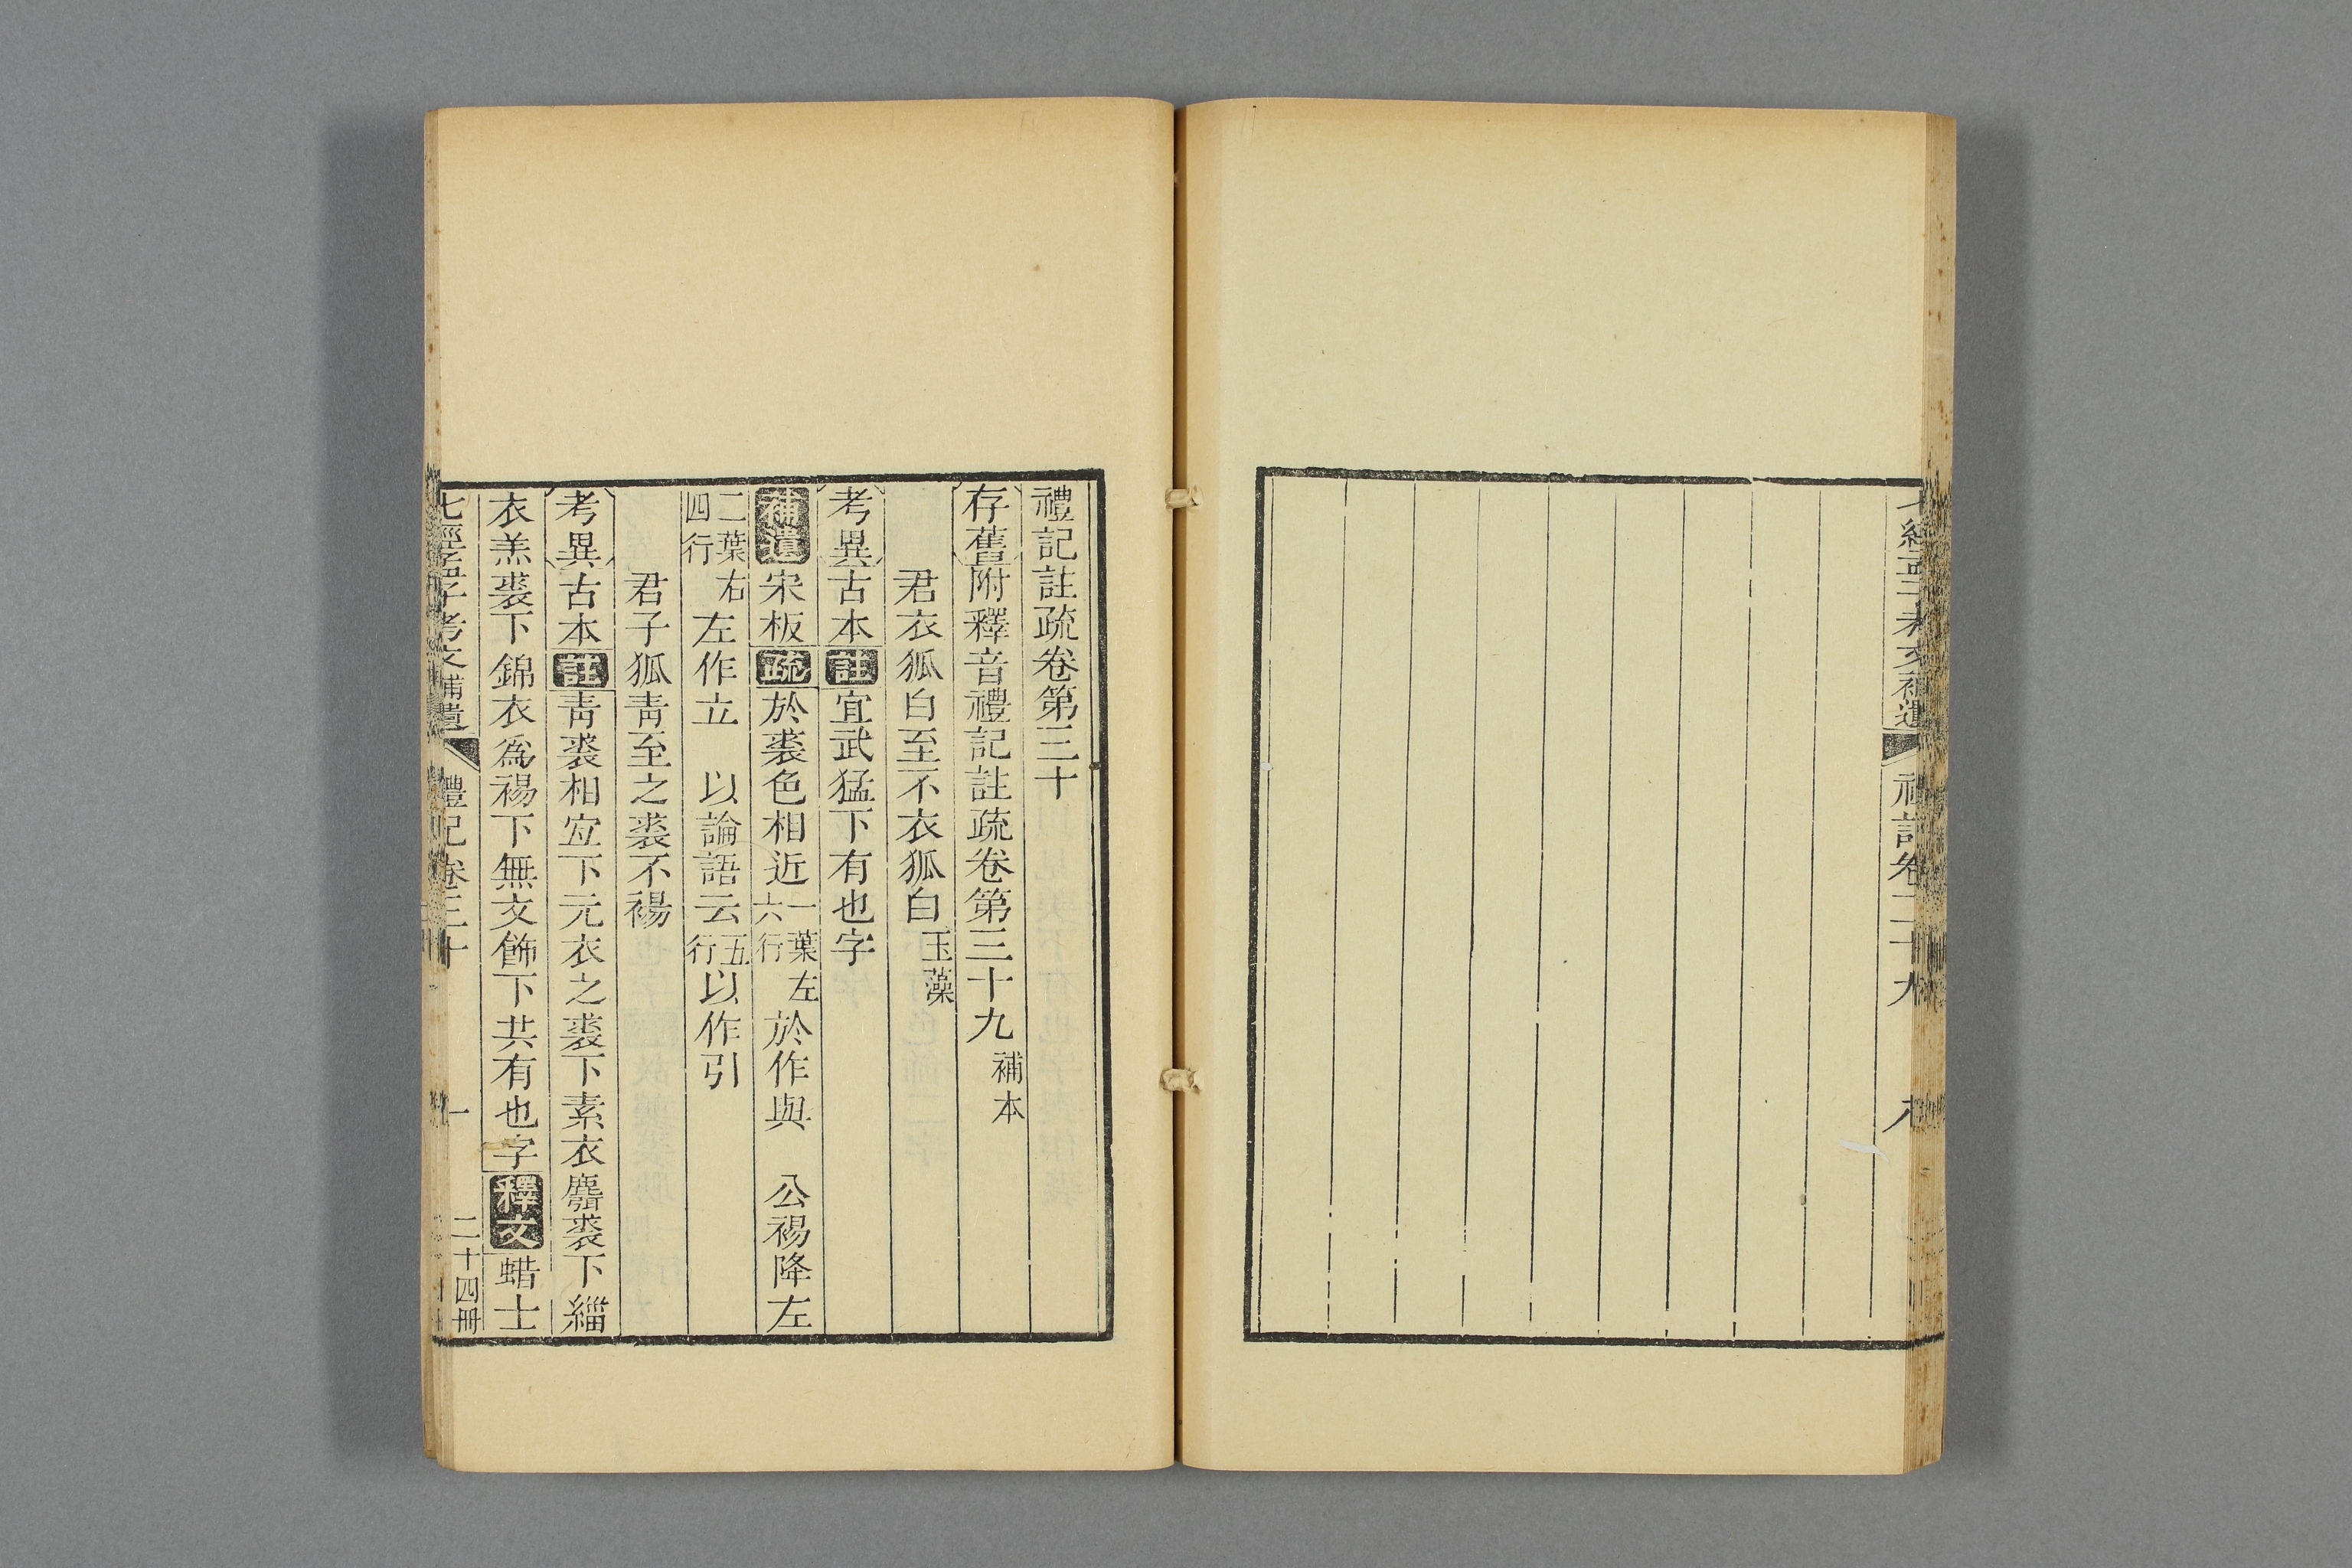 七經孟子考文補遺 禮記卷二十九 八
禮記註疏卷第三十
存舊附釋音禮記註疏卷第三十九補本
君衣狐白至不衣狐白玉藻
考異古本註宜武猛下有也字
補遺宋板疏於裘色相近一葉左六行於作與 公裼降左
二葉右四行左作立 以論語云五行以作引
君子狐靑至之裘不裼
考異古本註靑裘相宜下元衣之裘下素衣麛裘下緇
衣羔裘下錦衣爲裼下無文飾下共有也字釋文蜡士
七經孟子考文補遺 禮記卷三十 一 二十四冊